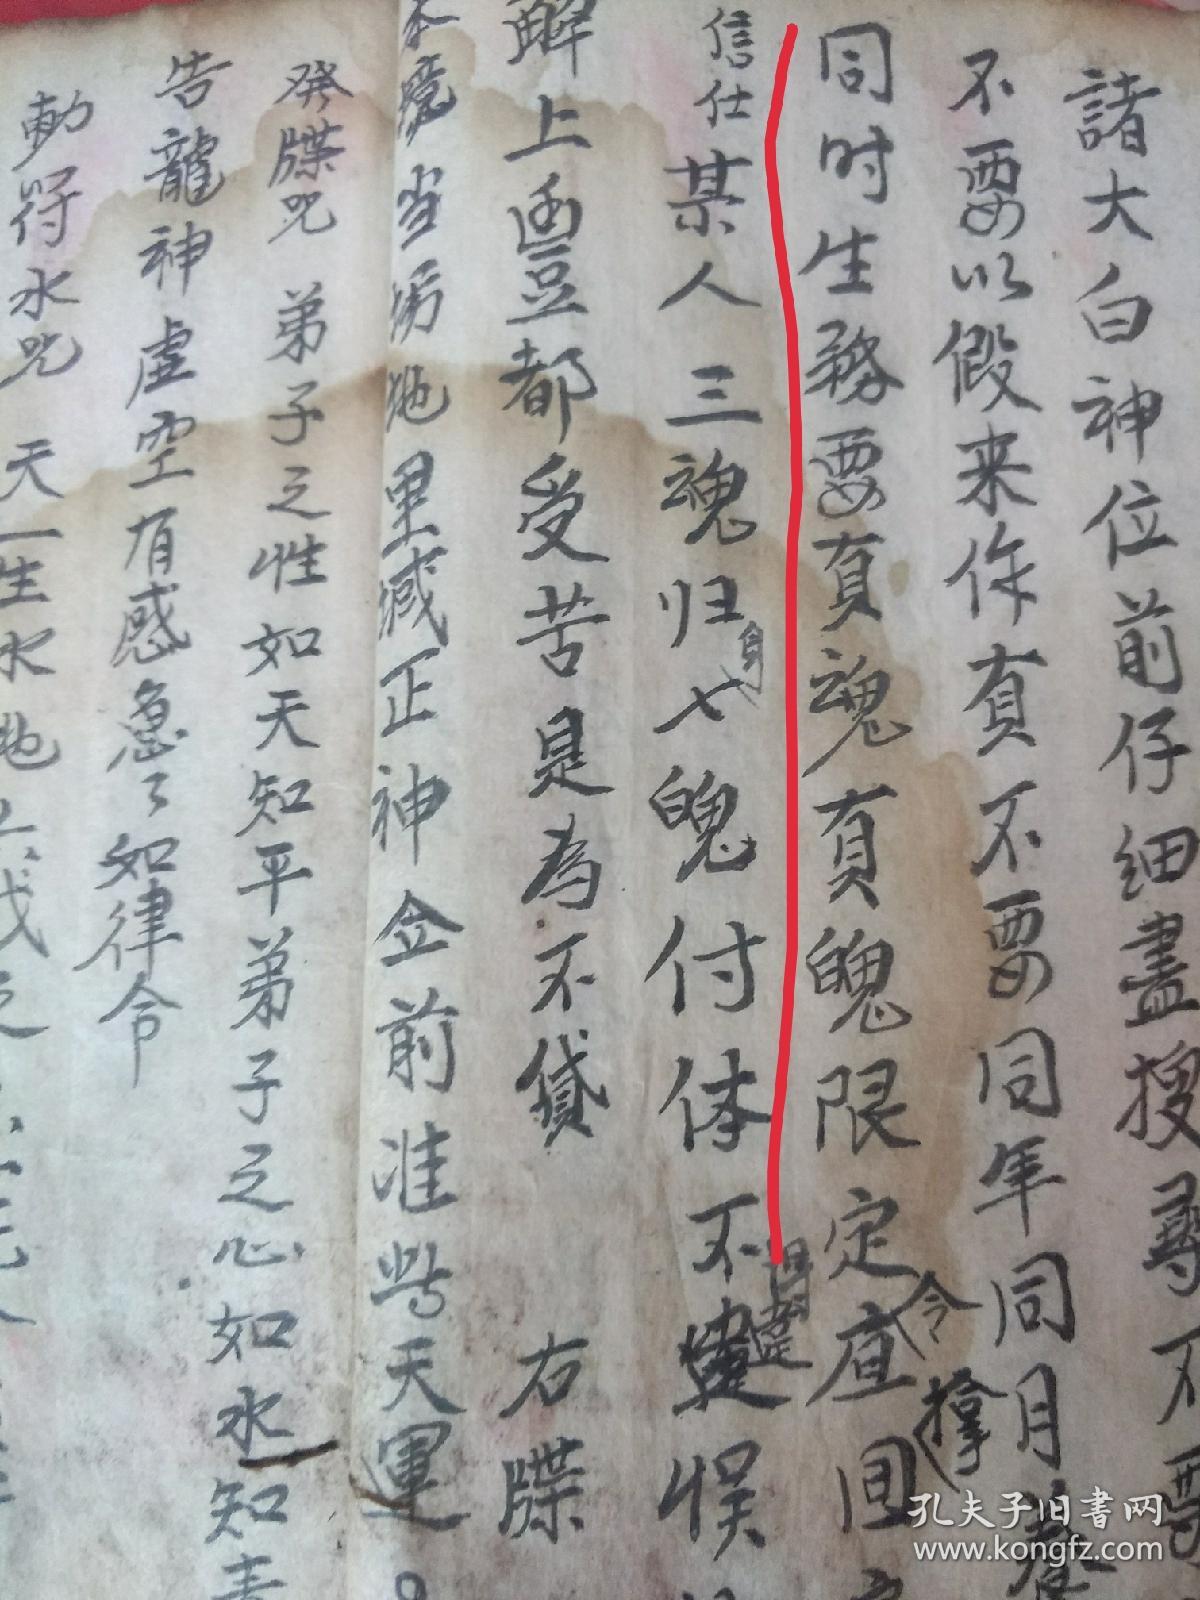 諸大白神位前仔细盡搜尋不要
不要以假来你貟不要同年同月
同时生務要貟魂貟魄限定直回
令
擒
信仕某人三魂归七魄付体不違悮
身
得違
解上酆都受苦是為不貸 右牒
本境当坊地里城正神 仝前准此天運
癸牒咒 弟子之性如天知平弟子之心如水知
告龍神虚空有感急々如律令
勅符水咒 天一生水地
孔夫子旧书网
www.kongfz.com